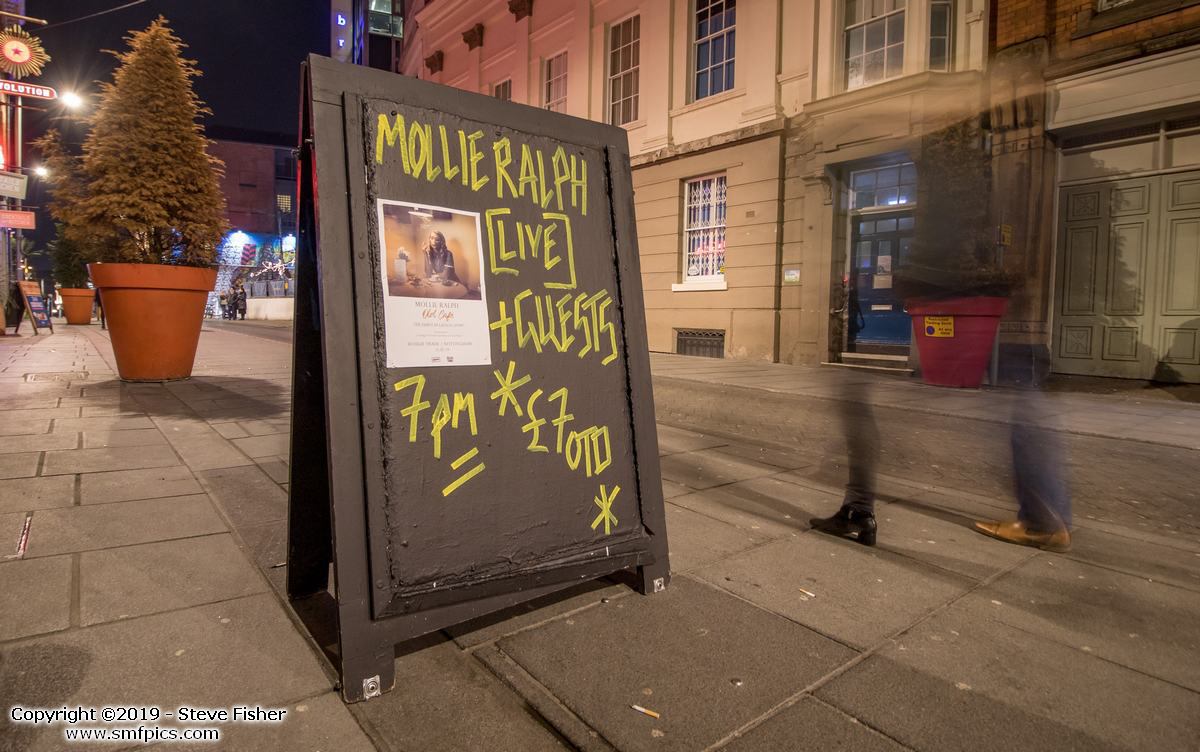 MOLLIE RALPH
[LIVE]
+GUESTS
7pm
* £7 OTD *
MOLLIE RALPH
ROUGH TRADE | NOTTINGHAM
b
r
VOLUTION
Copyright ©2019 - Steve Fisher
www.smfpics.com